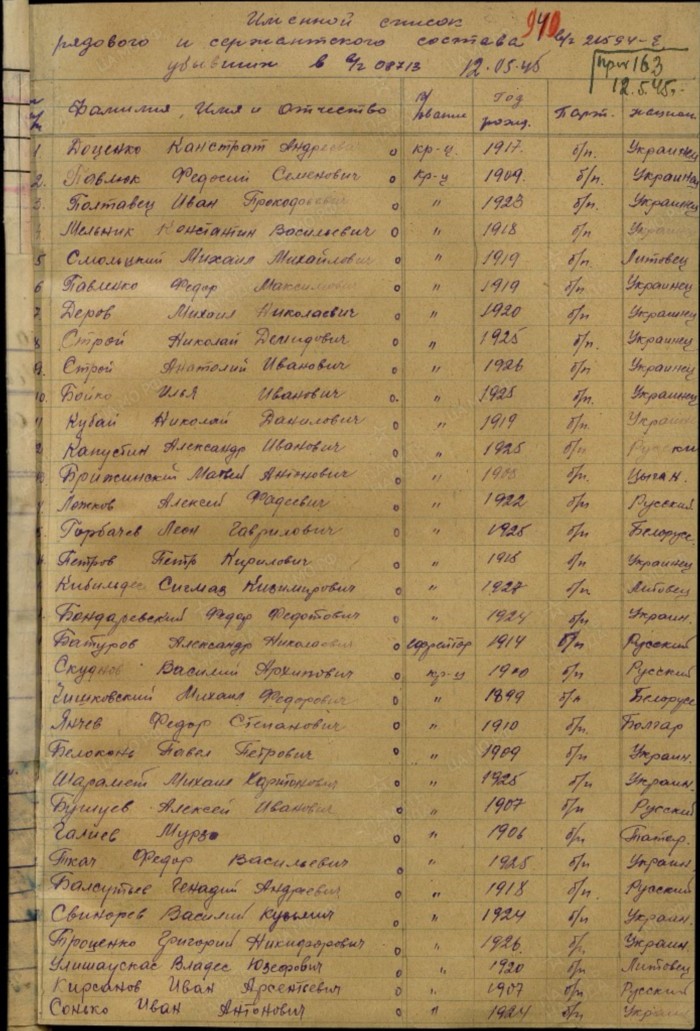 Именной список
рядового и сержантского состава в/ч 21594-Е
убывших в в/ч 08713 12.05.45
940
прик 163
12.5.45г.
Фамилия, Имя и отчество звание Год рожд. Парт. национ.
1 Доценко Канстрат Андреевич кр-ц. 1917 б/п. Украинец
2. Павлюк Федосий Семенович кр-ц 1909 б/п. Украинец
3. Полтавец Иван Прокофьевич " 1923 б/п. Украинец
Мельник Константин Васильевич " 1918 б/п Украинец
5 Смольцкий Михаил Михайлович " 1919 б/п. Литовец
6 Павленко Федор Максимович " 1919 б/п. Украинец
7. Деров Михаил Николаевич " 1920 б/п. Украинец
8 Строй Николай Демидович " 1925 б/п. Украинец
9. Строй Анатолий Иванович " 1926 б/п Украинец
10. Бойко Илья Иванович " 1925 б/п. Украинец
11 Кубай Николай Данилович " 1919 б/п. Украин
Капустин Александр Иванович " 1925 б/п Русский
Брижинский Матвей Антонович " б/п. Цыган.
Ложков Алексей Фадеевич " 1922 б/п Русский
Горбачев Леон Гаврилович " 1925 б/п Белорус
Петров Петр Кирилович " 1918 б/п Украинец
Кибильдес Сигмаз Кизимирович " 1927 б/п Литовец
Бондаревский Федор Федотович " 1924 б/п Украин.
Батуров Александр Николаевич ефрейтор 1914 б/п Русский
Скуднов Василий Архипович кр-ц 1900 б/п Русский
Зишковский Михаил Федорович " 1899 б/п Белорус
Янчев Федор Степанович " 1910 б/п. Болгар
Белоконь Павел Петрович " 1909 б/п Украин.
Шарамет Михаил Харитонович " 1925 б/п Украин.
Бушуев Алексей Иванович " 1907 б/п Русский
Галиев Мурза " 1906 б/п Татар.
Ткач Федор Васильевич " 1925 б/п Украин
Балсутые Генадий Андреевич " 1918 б/п. Русский
Свинорев Василий Кузьмич " 1924 б/п Украин.
Троценко Григорий Никифорович " 1926 б/п. Украин
Улишаускас Владес Юзефович " 1920 б/п Литовец
Кирсанов Иван Арсентьевич " 1907 б/п Русский
Сонько Иван Антонович " 1924 б/п Украин